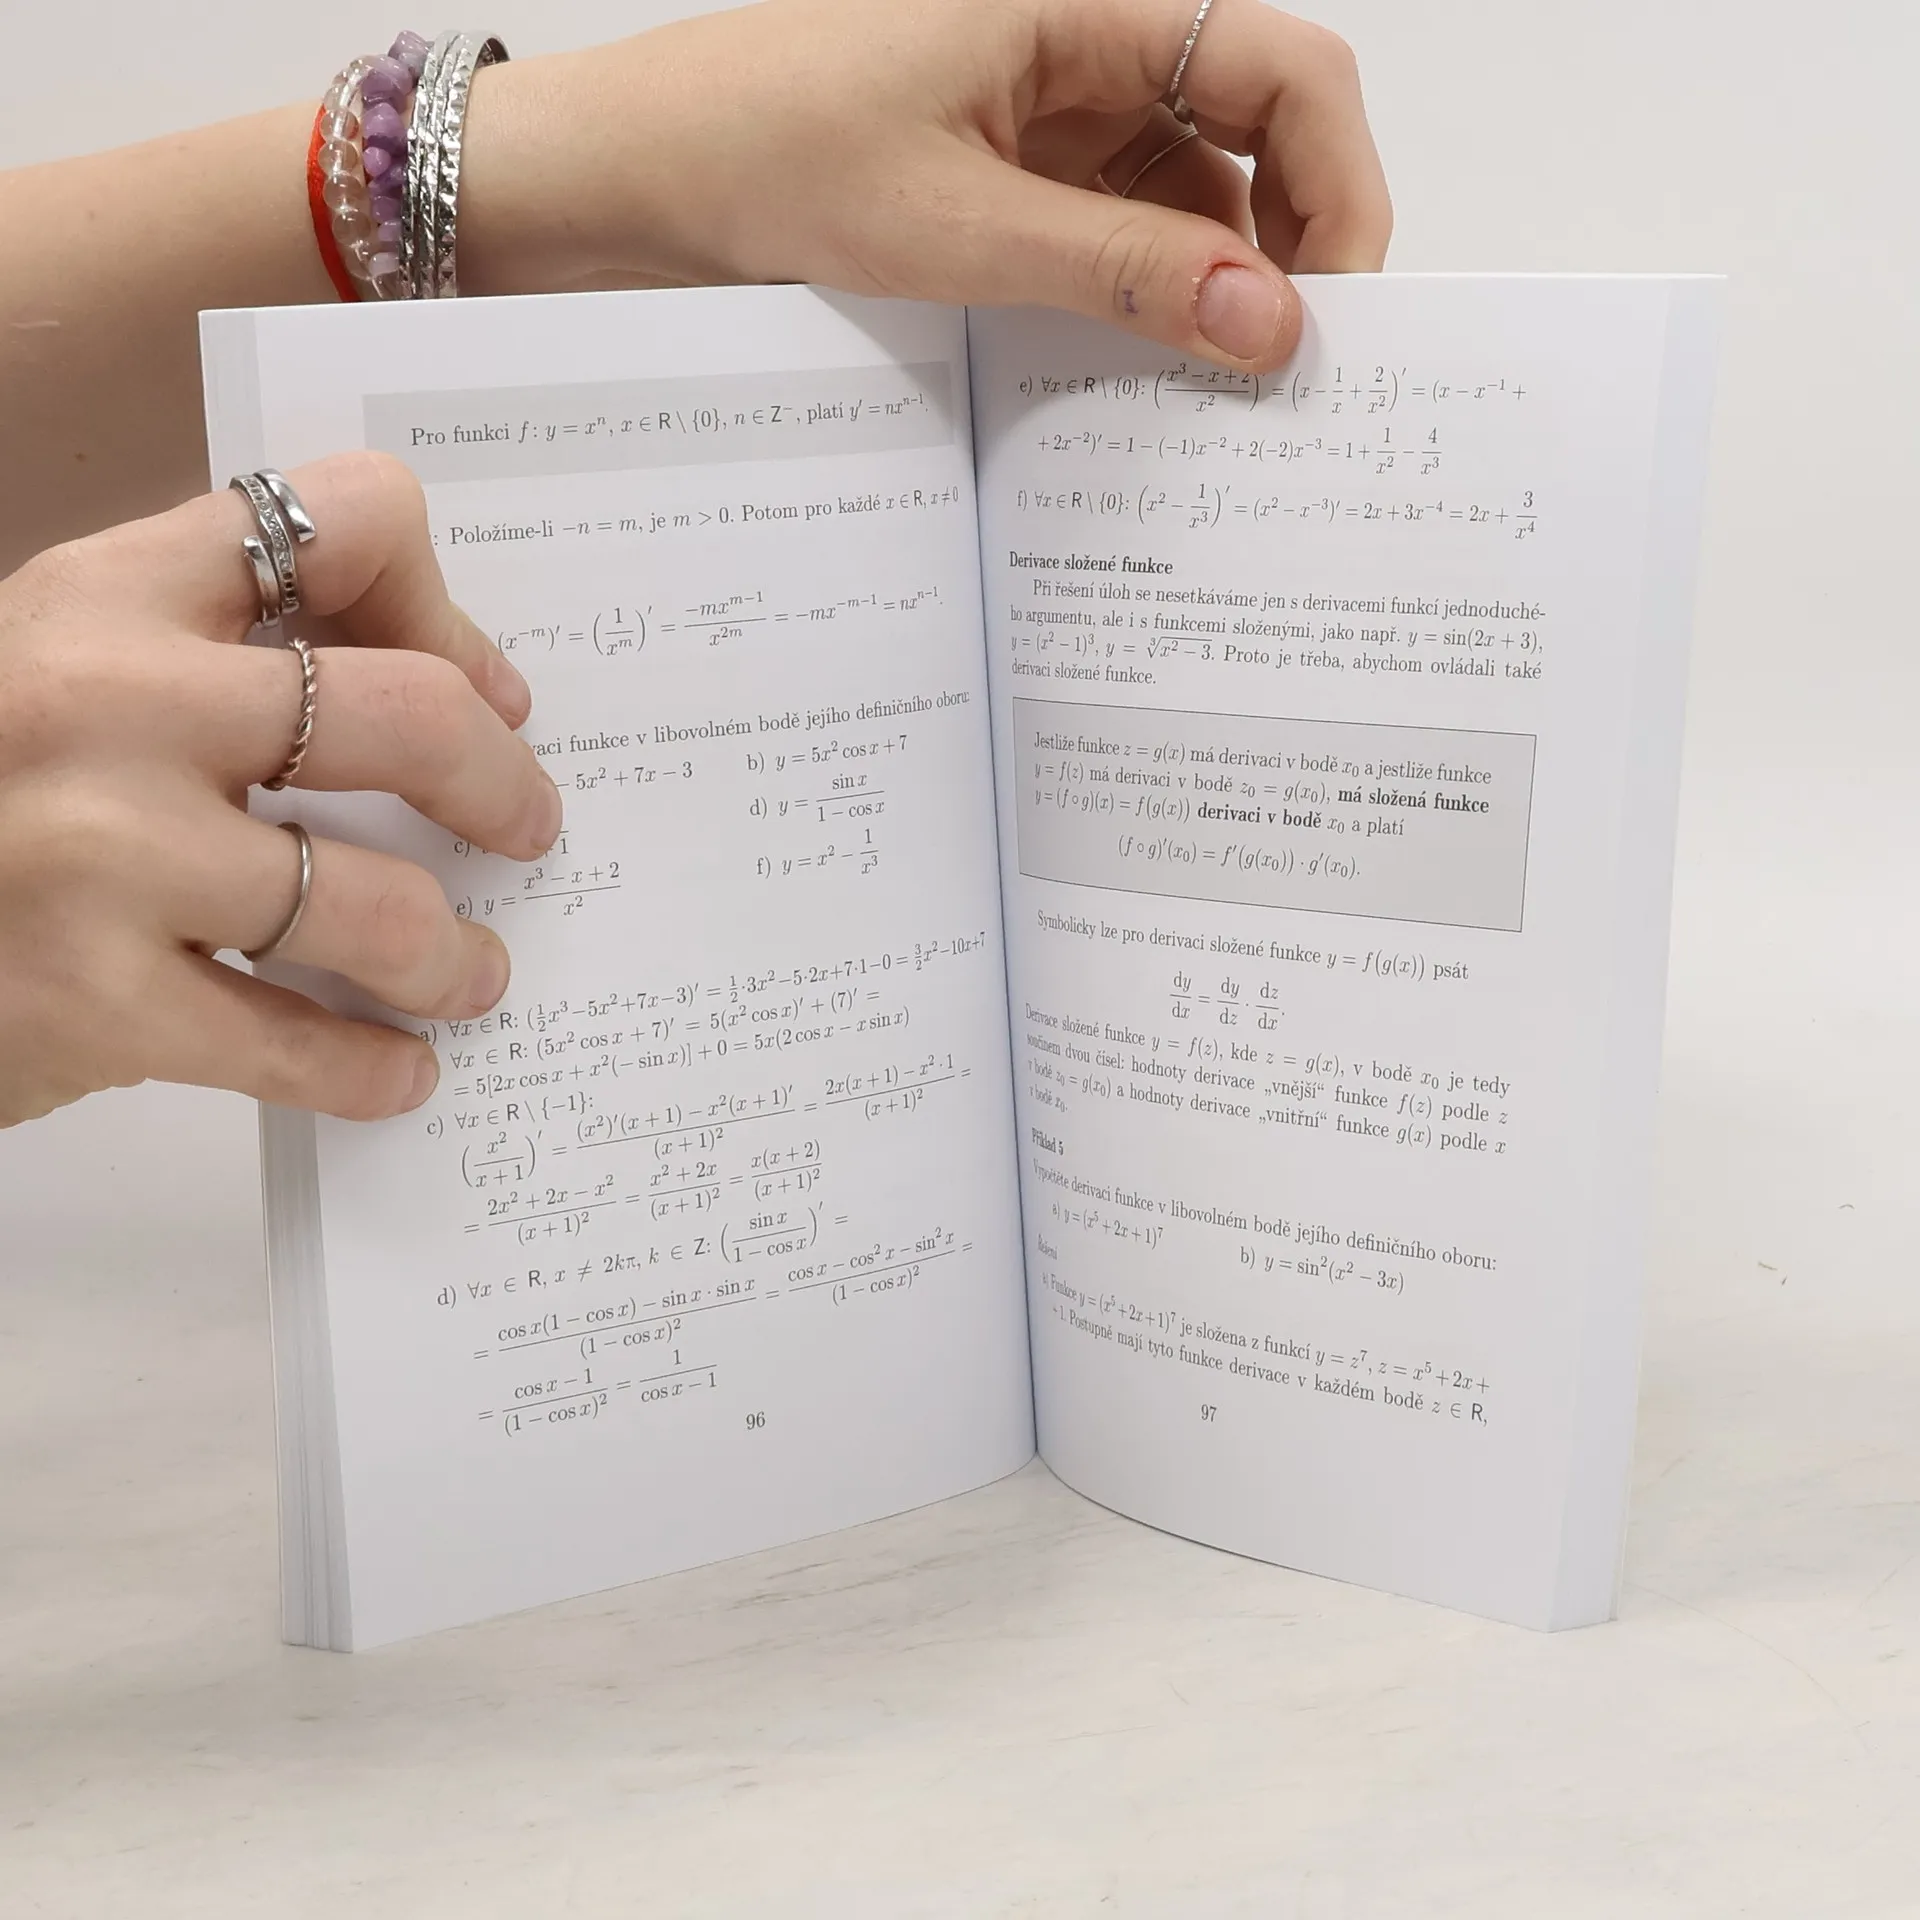 Pro funkci f: y = xⁿ, x ∈ R \ {0}, n ∈ Z⁻, platí y′ = nxⁿ⁻¹.
: Položíme-li −n = m, je m > 0. Potom pro každé x ∈ R, x ≠ 0
(x⁻ᵐ)′ = (1/xᵐ)′ = −mxᵐ⁻¹/x²ᵐ = −mx⁻ᵐ⁻¹ = nxⁿ⁻¹.
funkce v libovolném bodě jejího definičního oboru:
− 5x² + 7x − 3 b) y = 5x² cos x + 7
c) + 1 d) y = sin x/(1 − cos x)
e) y = (x³ − x + 2)/x² f) y = x² − 1/x³
a) ∀x ∈ R: (½x³ − 5x² + 7x − 3)′ = ½·3x² − 5·2x + 7·1 − 0 = 3/2x² − 10x + 7
∀x ∈ R: (5x² cos x + 7)′ = 5(x² cos x)′ + (7)′ =
= 5[2x cos x + x²(− sin x)] + 0 = 5x(2 cos x − x sin x)
c) ∀x ∈ R \ {−1}:
(x²/(x + 1))′ = ((x²)′(x + 1) − x²(x + 1)′)/(x + 1)² = (2x(x + 1) − x² · 1)/(x + 1)² =
= (2x² + 2x − x²)/(x + 1)² = (x² + 2x)/(x + 1)² = x(x + 2)/(x + 1)²
d) ∀x ∈ R, x ≠ 2kπ, k ∈ Z: (sin x/(1 − cos x))′ =
= (cos x(1 − cos x) − sin x · sin x)/(1 − cos x)² = (cos x − cos² x − sin² x)/(1 − cos x)² =
= (cos x − 1)/(1 − cos x)² = 1/(cos x − 1)
96
e) ∀x ∈ R \ {0}: ((x³ − x + 2)/x²)′ = (x − 1/x + 2/x²)′ = (x − x⁻¹ +
+ 2x⁻²)′ = 1 − (−1)x⁻² + 2(−2)x⁻³ = 1 + 1/x² − 4/x³
f) ∀x ∈ R \ {0}: (x² − 1/x³)′ = (x² − x⁻³)′ = 2x + 3x⁻⁴ = 2x + 3/x⁴
Derivace složené funkce
Při řešení úloh se nesetkáváme jen s derivacemi funkcí jednoduché-
ho argumentu, ale i s funkcemi složenými, jako např. y = sin(2x + 3),
y = (x² − 1)³, y = ∛(x² − 3). Proto je třeba, abychom ovládali také
derivaci složené funkce.
Jestliže funkce z = g(x) má derivaci v bodě x₀ a jestliže funkce
y = f(z) má derivaci v bodě z₀ = g(x₀), má složená funkce
y = (f ∘ g)(x) = f(g(x)) derivaci v bodě x₀ a platí
(f ∘ g)′(x₀) = f′(g(x₀)) · g′(x₀).
Symbolicky lze pro derivaci složené funkce y = f(g(x)) psát
dy/dx = dy/dz · dz/dx.
Derivace složené funkce y = f(z), kde z = g(x), v bodě x₀ je tedy
součinem dvou čísel: hodnoty derivace „vnější“ funkce f(z) podle z
v bodě z₀ = g(x₀) a hodnoty derivace „vnitřní“ funkce g(x) podle x
v bodě x₀.
Příklad 5
Vypočtěte derivaci funkce v libovolném bodě jejího definičního oboru:
a) y = (x⁵ + 2x + 1)⁷ b) y = sin²(x² − 3x)
Řešení
a) Funkce y = (x⁵ + 2x + 1)⁷ je složena z funkcí y = z⁷, z = x⁵ + 2x +
+ 1. Postupně mají tyto funkce derivace v každém bodě z ∈ R,
97